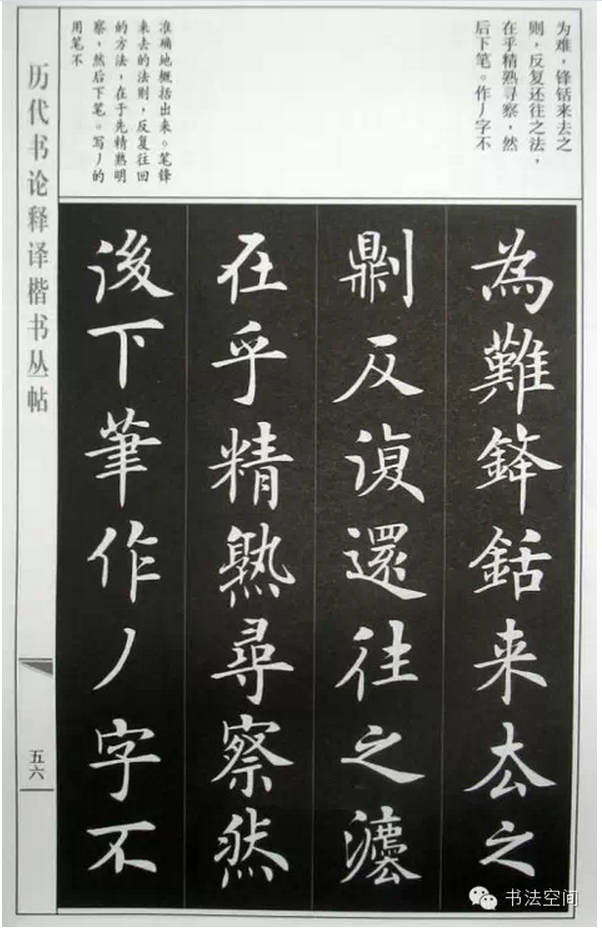 为难，锋铦来去之
则，反复还往之法，
在乎精熟寻察，然
后下笔。作丿字不
准确地概括出来。笔锋
来去的法则，反复往回
的方法，在于先精熟明
察，然后下笔。写丿的
用笔不
為難鋒銛来去之
劓反復還往之灋
在乎精熟尋察然
後下筆作丿字不
历代书论释译楷书丛帖
五六
书法空间